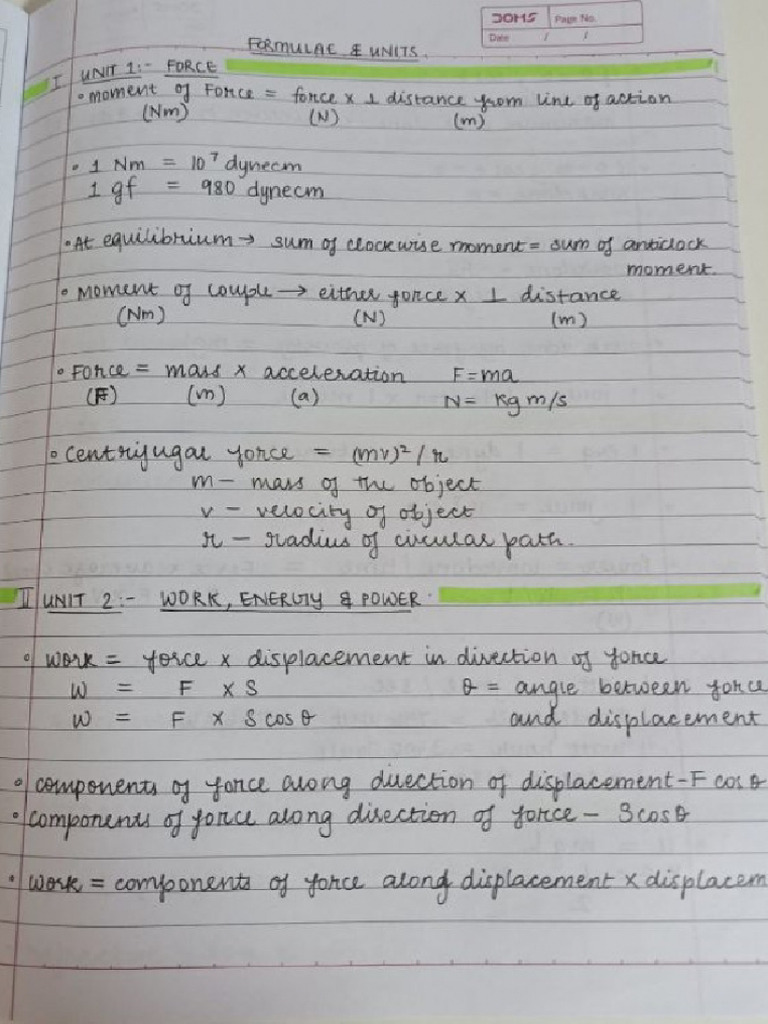 JOMS Page No.
Date / /
FORMULAE & UNITS.
I UNIT 1:- FORCE
• Moment of Force = force x ⊥ distance from line of action
(Nm) (N) (m)
• 1 Nm = 10⁷ dynecm
1 gf = 980 dynecm
• At equilibrium → sum of clockwise moment = sum of anticlock
moment.
• Moment of couple → either force x ⊥ distance
(Nm) (N) (m)
• Force = mass x acceleration F=ma
(F) (m) (a) N = Kg m/s
• Centrifugal force = (mv)²/r
m – mass of the object
v – velocity of object
r – radius of circular path.
II UNIT 2:- WORK, ENERGY & POWER.
• Work = force x displacement in direction of force
W = F x S θ = angle between force
W = F x S cos θ and displacement
• components of force along direction of displacement - F cos θ
• components of force along direction of force - S cos θ
• Work = components of force along displacement x displacem